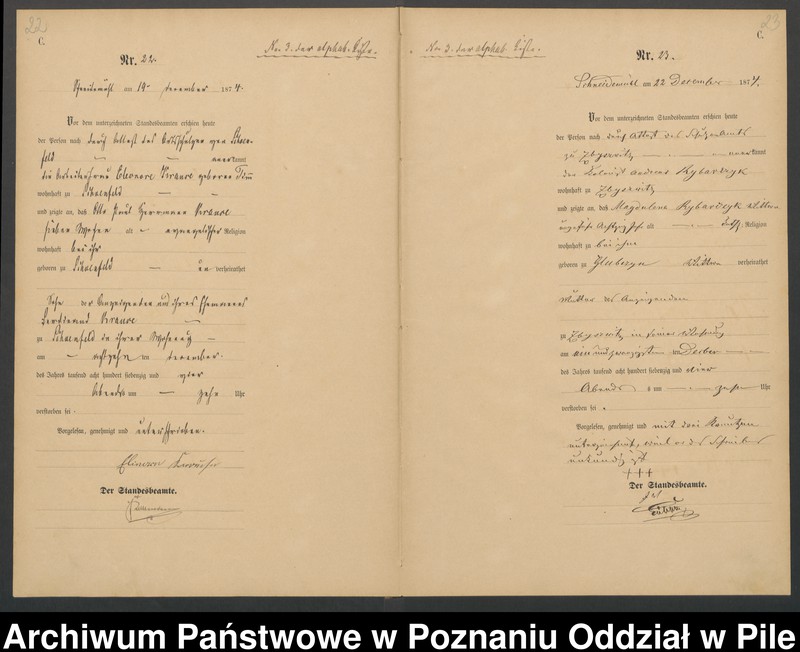 22
C.
Nr. 22.
No. 3. der alphab. Liste.
Schneidemühl am 19. December 1874.
Vor dem unterzeichneten Standesbeamten erschien heute
der Person nach durch Attest des
feld — — aner kannt
die Eleonore Krause geborene
wohnhaft zu Schoenfeld — —
und zeigte an, daß Otto Paul Herrmann Krause
sieben Wochen alt — evangelischer Religion
wohnhaft bei ihr
geboren zu Schoenfeld — un verheirathet
Sohn der Anzeigenden und ihres Ehemannes
Ferdinand Krause —
zu Schoenfeld in ihrer Wohnung —
am — achtzehn ten December
des Jahres tausend acht hundert siebenzig und vier
Abends um — zehn Uhr
verstorben sei.
Vorgelesen, genehmigt und unterschrieben.
Der Standesbeamte.
23
C.
No. 3. der alphab. Liste.
Nr. 23.
Schneidemühl am 22 December 1874.
Vor dem unterzeichneten Standesbeamten erschien heute
der Person nach durch Attest des Schulzenamts
zu — aner kannt
der Andreas Rybarczyk
wohnhaft zu
und zeigte an, daß Magdalena Rybarczyk Wittwe
alt — kath. Religion
wohnhaft bei ihm
geboren zu Wittwe verheirathet
Mutter des Anzeigenden
zu in seiner Wohnung
am ein und zwanzigsten Decber
des Jahres tausend acht hundert siebenzig und vier
Abends um — zehn Uhr
verstorben sei.
Vorgelesen, genehmigt und mit drei Kreuzen
unterzeichnet, weil er des Schreibens
unkundig ist
+++
Der Standesbeamte.
Archiwum Państwowe w Poznaniu Oddział w Pile